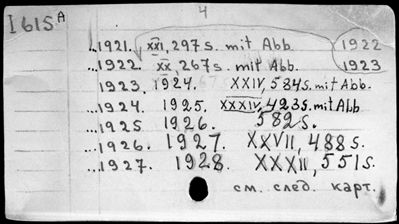 4
I 615 A
...1921. XXI, 297 s. mit Abb. 1922
...1922. XX, 267 s. mit Abb. 1923
...1923. 1924. XXIV, 584 s. mit Abb.
...1924. 1925. XXXIV, 423 s. mit Abb
...1925 1926. 582 s.
...1926. 1927. XXVII, 488 s.
...1927. 1928. XXXII, 551 s.
см. след. карт.